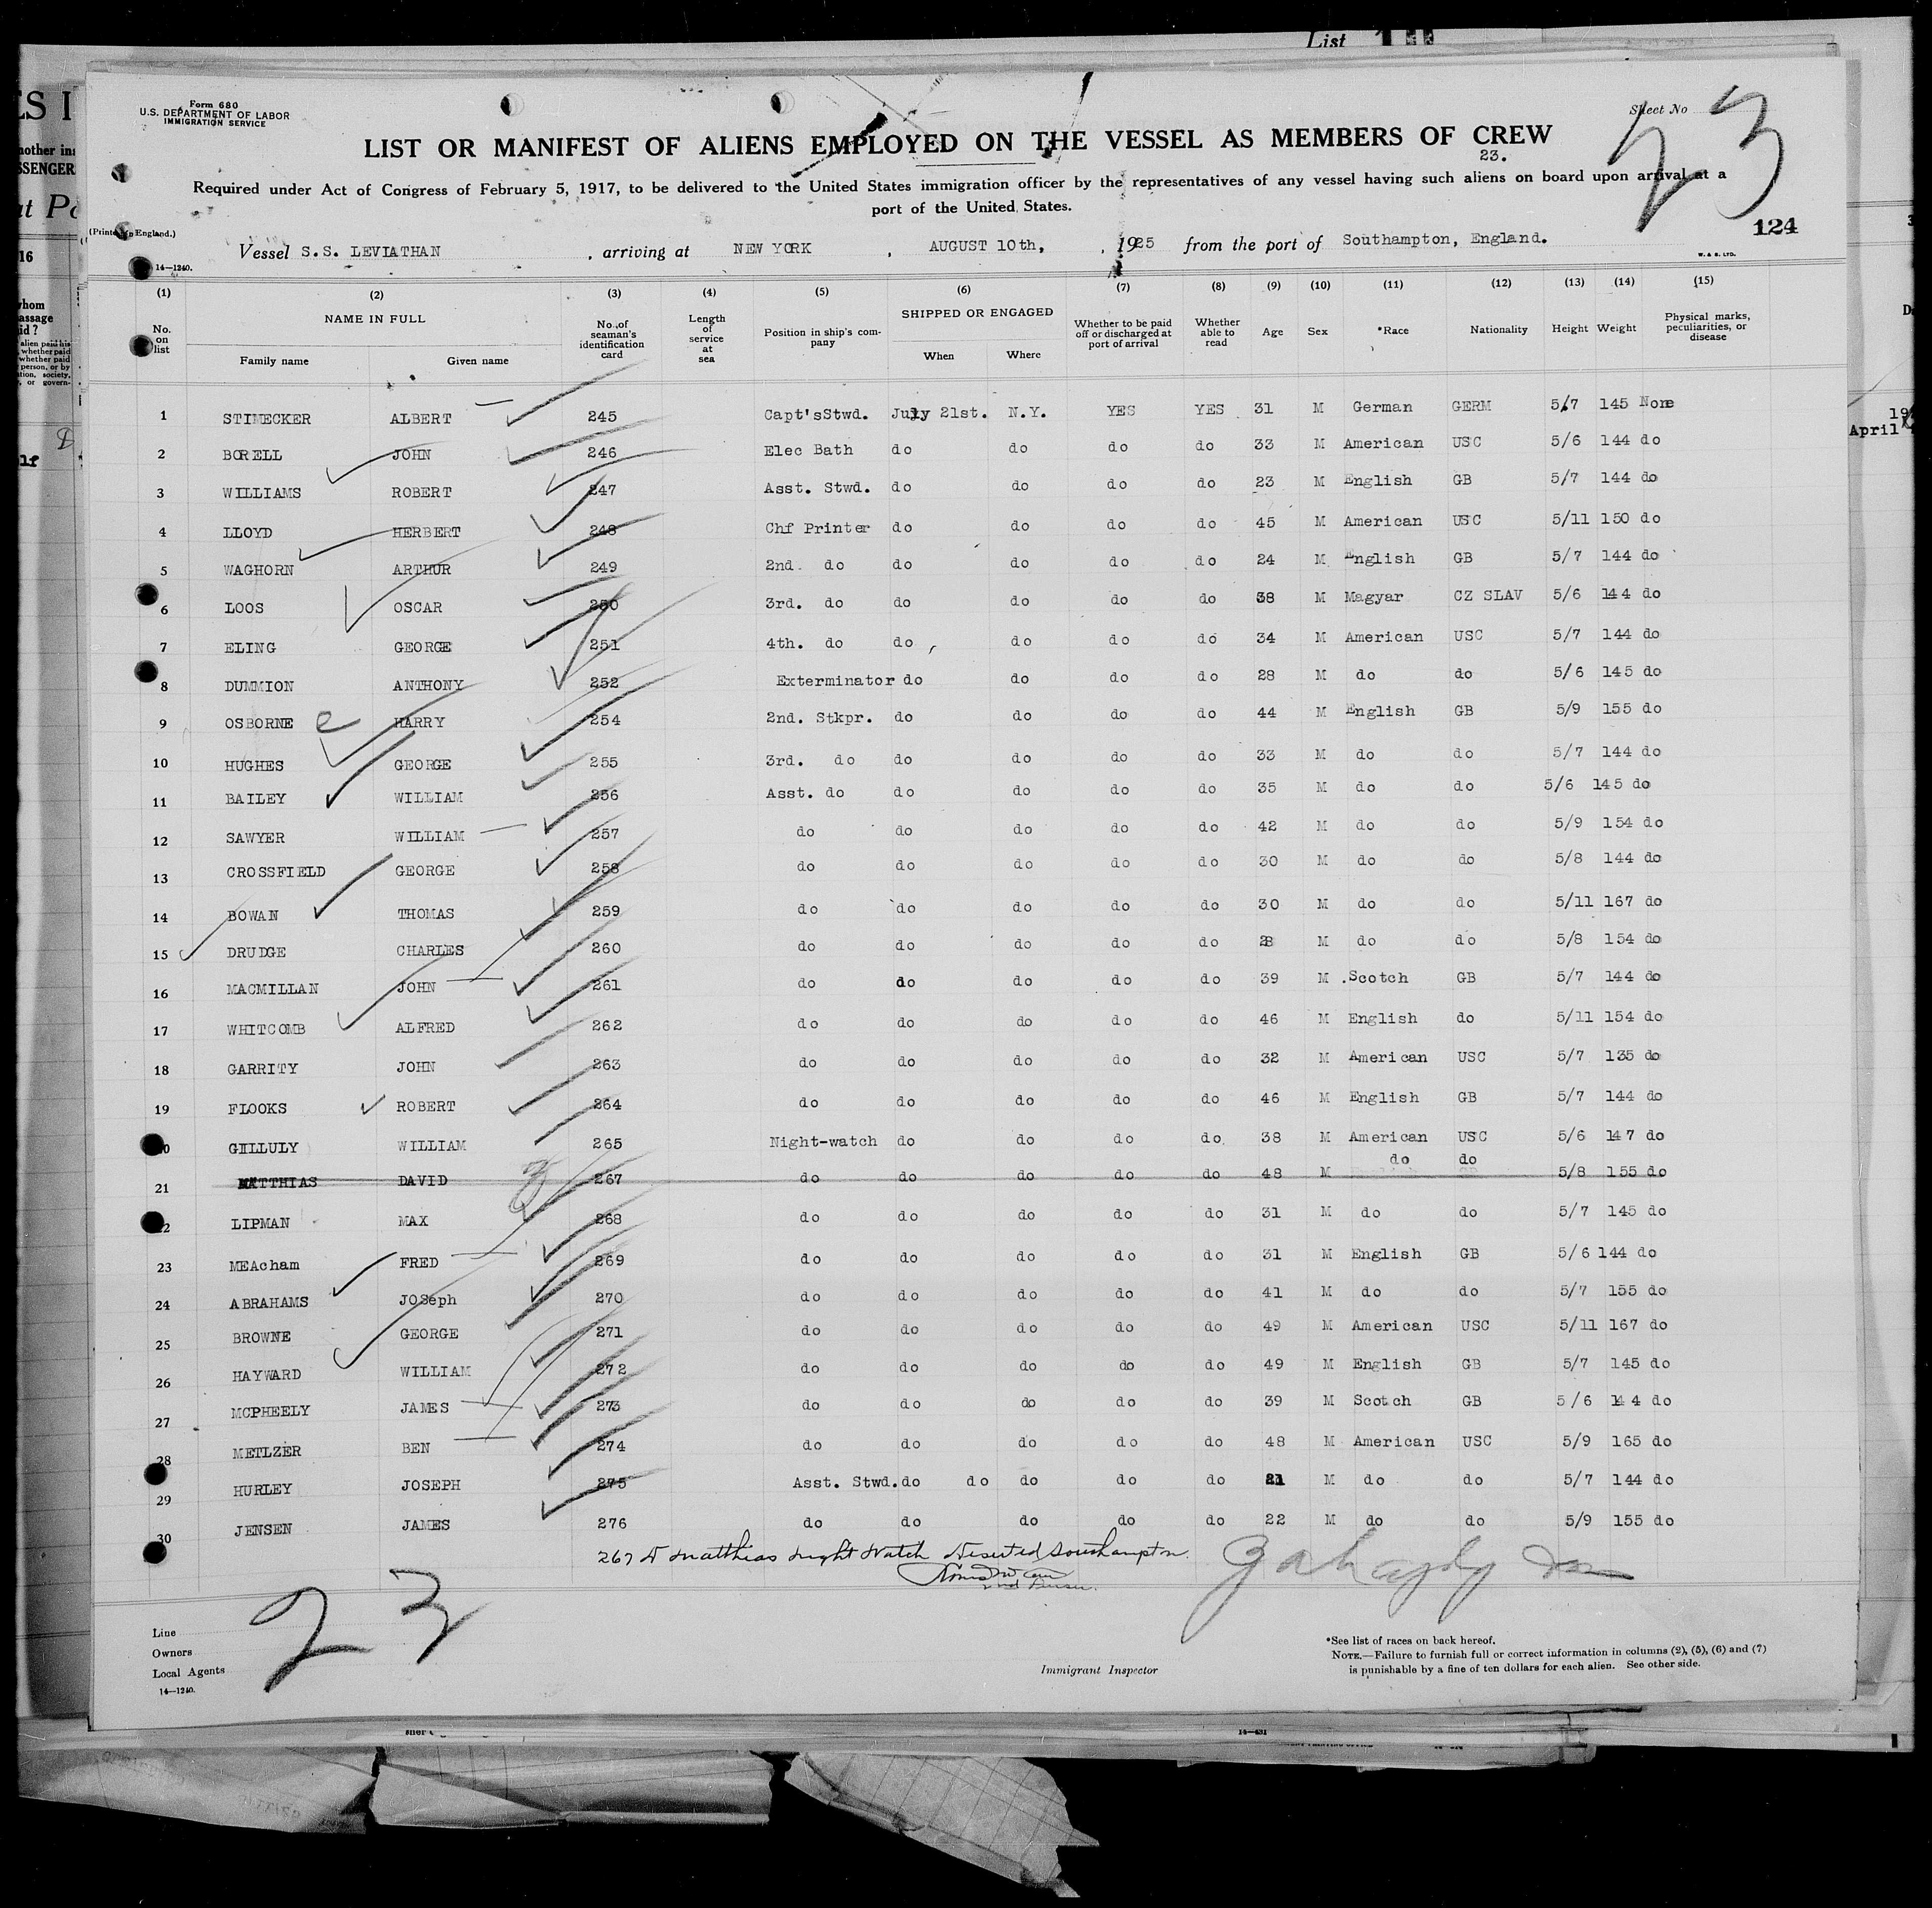 List
Form 680
U.S. DEPARTMENT OF LABOR
IMMIGRATION SERVICE
Sheet No 23
LIST OR MANIFEST OF ALIENS EMPLOYED ON THE VESSEL AS MEMBERS OF CREW
23.
Required under Act of Congress of February 5, 1917, to be delivered to the United States immigration officer by the representatives of any vessel having such aliens on board upon arrival at a
port of the United States.
(Printed in England.)
124
Vessel S.S. LEVIATHAN , arriving at NEW YORK , AUGUST 10th, , 1925 from the port of Southampton, England.
14—1240.
W. & S. LTD.
(1) (2) (3) (4) (5) (6) (7) (8) (9) (10) (11) (12) (13) (14) (15)
No. on list NAME IN FULL Family name Given name No. of seaman's identification card Length of service at sea Position in ship's company SHIPPED OR ENGAGED When Where Whether to be paid off or discharged at port of arrival Whether able to read Age Sex *Race Nationality Height Weight Physical marks, peculiarities, or disease
1 STIMECKER ALBERT 245 Capt'sStwd. July 21st. N.Y. YES YES 31 M German GERM 5/7 145 None
2 BORELL JOHN 246 Elec Bath do do do do 33 M American USC 5/6 144 do
3 WILLIAMS ROBERT 247 Asst. Stwd. do do do do 23 M English GB 5/7 144 do
4 LLOYD HERBERT 248 Chf Printer do do do do 45 M American USC 5/11 150 do
5 WAGHORN ARTHUR 249 2nd. do do do do do 24 M English GB 5/7 144 do
6 LOOS OSCAR 250 3rd. do do do do do 38 M Magyar CZ SLAV 5/6 144 do
7 ELING GEORGE 251 4th. do do do do do 34 M American USC 5/7 144 do
8 DUMMION ANTHONY 252 Exterminator do do do do 28 M do do 5/6 145 do
9 OSBORNE e HARRY 254 2nd. Stkpr. do do do do 44 M English GB 5/9 155 do
10 HUGHES GEORGE 255 3rd. do do do do do 33 M do do 5/7 144 do
11 BAILEY WILLIAM 256 Asst. do do do do do 35 M do do 5/6 145 do
12 SAWYER WILLIAM 257 do do do do do 42 M do do 5/9 154 do
13 CROSSFIELD GEORGE 258 do do do do do 30 M do do 5/8 144 do
14 BOWAN THOMAS 259 do do do do do 30 M do do 5/11 167 do
15 DRUDGE CHARLES 260 do do do do do 28 M do do 5/8 154 do
16 MACMILLAN JOHN 261 do do do do do 39 M .Scotch GB 5/7 144 do
17 WHITCOMB ALFRED 262 do do do do do 46 M English do 5/11 154 do
18 GARRITY JOHN 263 do do do do do 32 M American USC 5/7 135 do
19 FLOOKS ROBERT 264 do do do do do 46 M English GB 5/7 144 do
20 GILLULY WILLIAM 265 Night-watch do do do do 38 M American USC 5/6 147 do
21 MATTHIAS DAVID 267 do do do do do 48 M do do 5/8 155 do
22 LIPMAN MAX 268 do do do do do 31 M do do 5/7 145 do
23 MEAcham FRED 269 do do do do do 31 M English GB 5/6 144 do
24 ABRAHAMS JOSeph 270 do do do do do 41 M do do 5/7 155 do
25 BROWNE GEORGE 271 do do do do do 49 M American USC 5/11 167 do
26 HAYWARD WILLIAM 272 do do do do do 49 M English GB 5/7 145 do
27 MCPHEELY JAMES 273 do do do do do 39 M Scotch GB 5/6 144 do
28 METLZER BEN 274 do do do do do 48 M American USC 5/9 165 do
29 HURLEY JOSEPH 275 Asst. Stwd. do do do do do 21 M do do 5/7 144 do
30 JENSEN JAMES 276 do do do do do 22 M do do 5/9 155 do
267 D Matthias Night Watch Deserted Southampton.
2nd Purser.
23
Line
Owners
Local Agents
14—1240.
Immigrant Inspector
*See list of races on back hereof.
NOTE.—Failure to furnish full or correct information in columns (2), (5), (6) and (7)
is punishable by a fine of ten dollars for each alien. See other side.
April
14—431